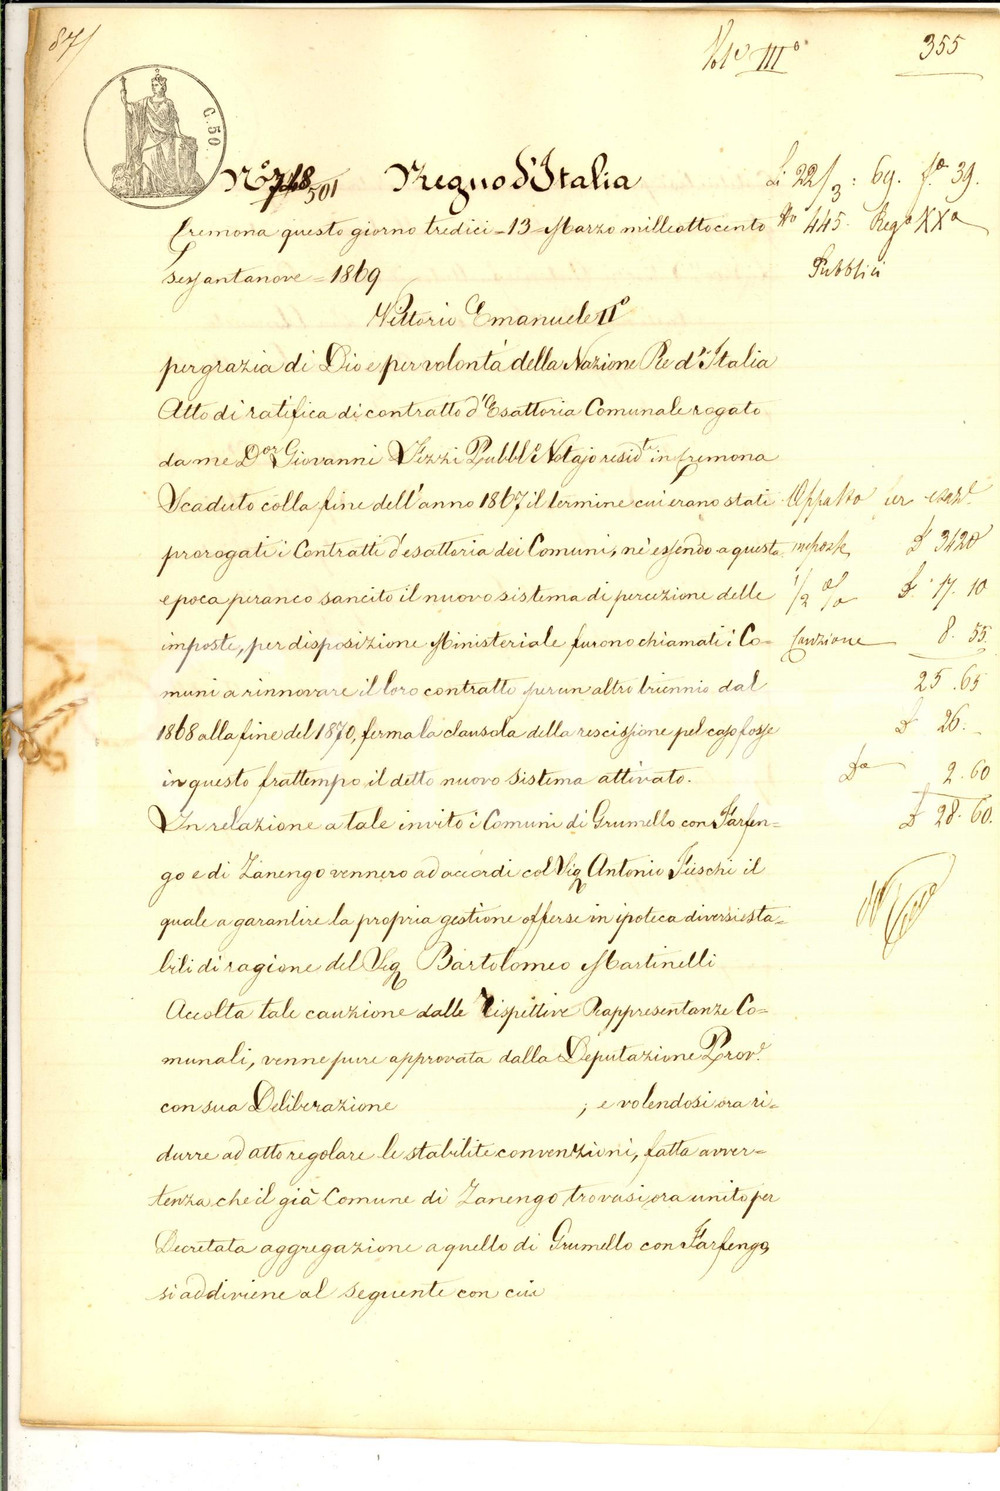 87/
Vol. III°
355
C. 50.
N° 748/501 Regno d'Italia
Li 22/3 : 69. f.° 39.
N° 445. Reg° XX°
Pubblici
Cremona questo giorno tredici - 13 - Marzo milleottocento
sessantanove = 1869
Vittorio Emanuele II°
per grazia di Dio e per volontà della Nazione Re d'Italia
Atto di ratifica di contratto d'Esattoria Comunale rogato
da me D.or Giovanni Vezzi Pubbl.° Notajo resid.te in Cremona
Scaduto colla fine dell'anno 1867 il termine cui erano stati
prorogati i Contratti d'esattoria dei Comuni, nè essendo a questa
epoca peranco sancito il nuovo sistema di percezione delle
imposte, per disposizione Ministeriale furono chiamati i Co-
muni a rinnovare il loro contratto per un altro triennio dal
1868 alla fine del 1870, ferma la clausola della rescissione pel caso fosse
in questo frattempo il detto nuovo sistema attivato.
In relazione a tale invito i Comuni di Grumello con Farfen-
go e di Zanengo vennero ad accordi col Sig. Antonio Fieschi il
quale a garantire la propria gestione offerse in ipoteca diversi sta-
bili di ragione del Sig. Bartolomeo Martinelli
Accolta tale cauzione dalle rispettive Rappresentanze Co-
munali, venne pure approvata dalla Deputazione Prov.e
con sua Deliberazione ; e volendosi ora ri-
durre ad atto regolare le stabilite convenzioni, fatta avver-
tenza che il già Comune di Zanengo trovasi ora unito per
Decretata aggregazione a quello di Grumello con Farfengo,
si addiviene al seguente con cui
Appalto per esaz.e
imposte £ 3420
1/2 % £ 17. 10
Cauzione 8. 55
25. 65
£ 26. -
D.a 2. 60
£ 28. 60.